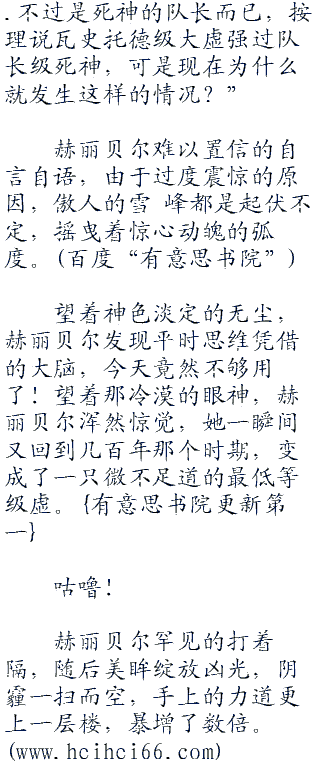 .不过是死神的队长而已，按
理说瓦史托德级大虚强过队
长级死神，可是现在为什么
就发生这样的情况？”
赫丽贝尔难以置信的自
言自语，由于过度震惊的原
因，傲人的雪 峰都是起伏不
定，摇曳着惊心动魄的弧
度。(百度“有意思书院”)
望着神色淡定的无尘，
赫丽贝尔发现平时思维凭借
的大脑，今天竟然不够用
了！望着那冷漠的眼神，赫
丽贝尔浑然惊觉，她一瞬间
又回到几百年那个时期，变
成了一只微不足道的最低等
级虚。{有意思书院更新第
一}
咕噜！
赫丽贝尔罕见的打着
隔，随后美眸绽放凶光，阴
霾一扫而空，手上的力道更
上一层楼，暴增了数倍。
(www.hcihci66.com)